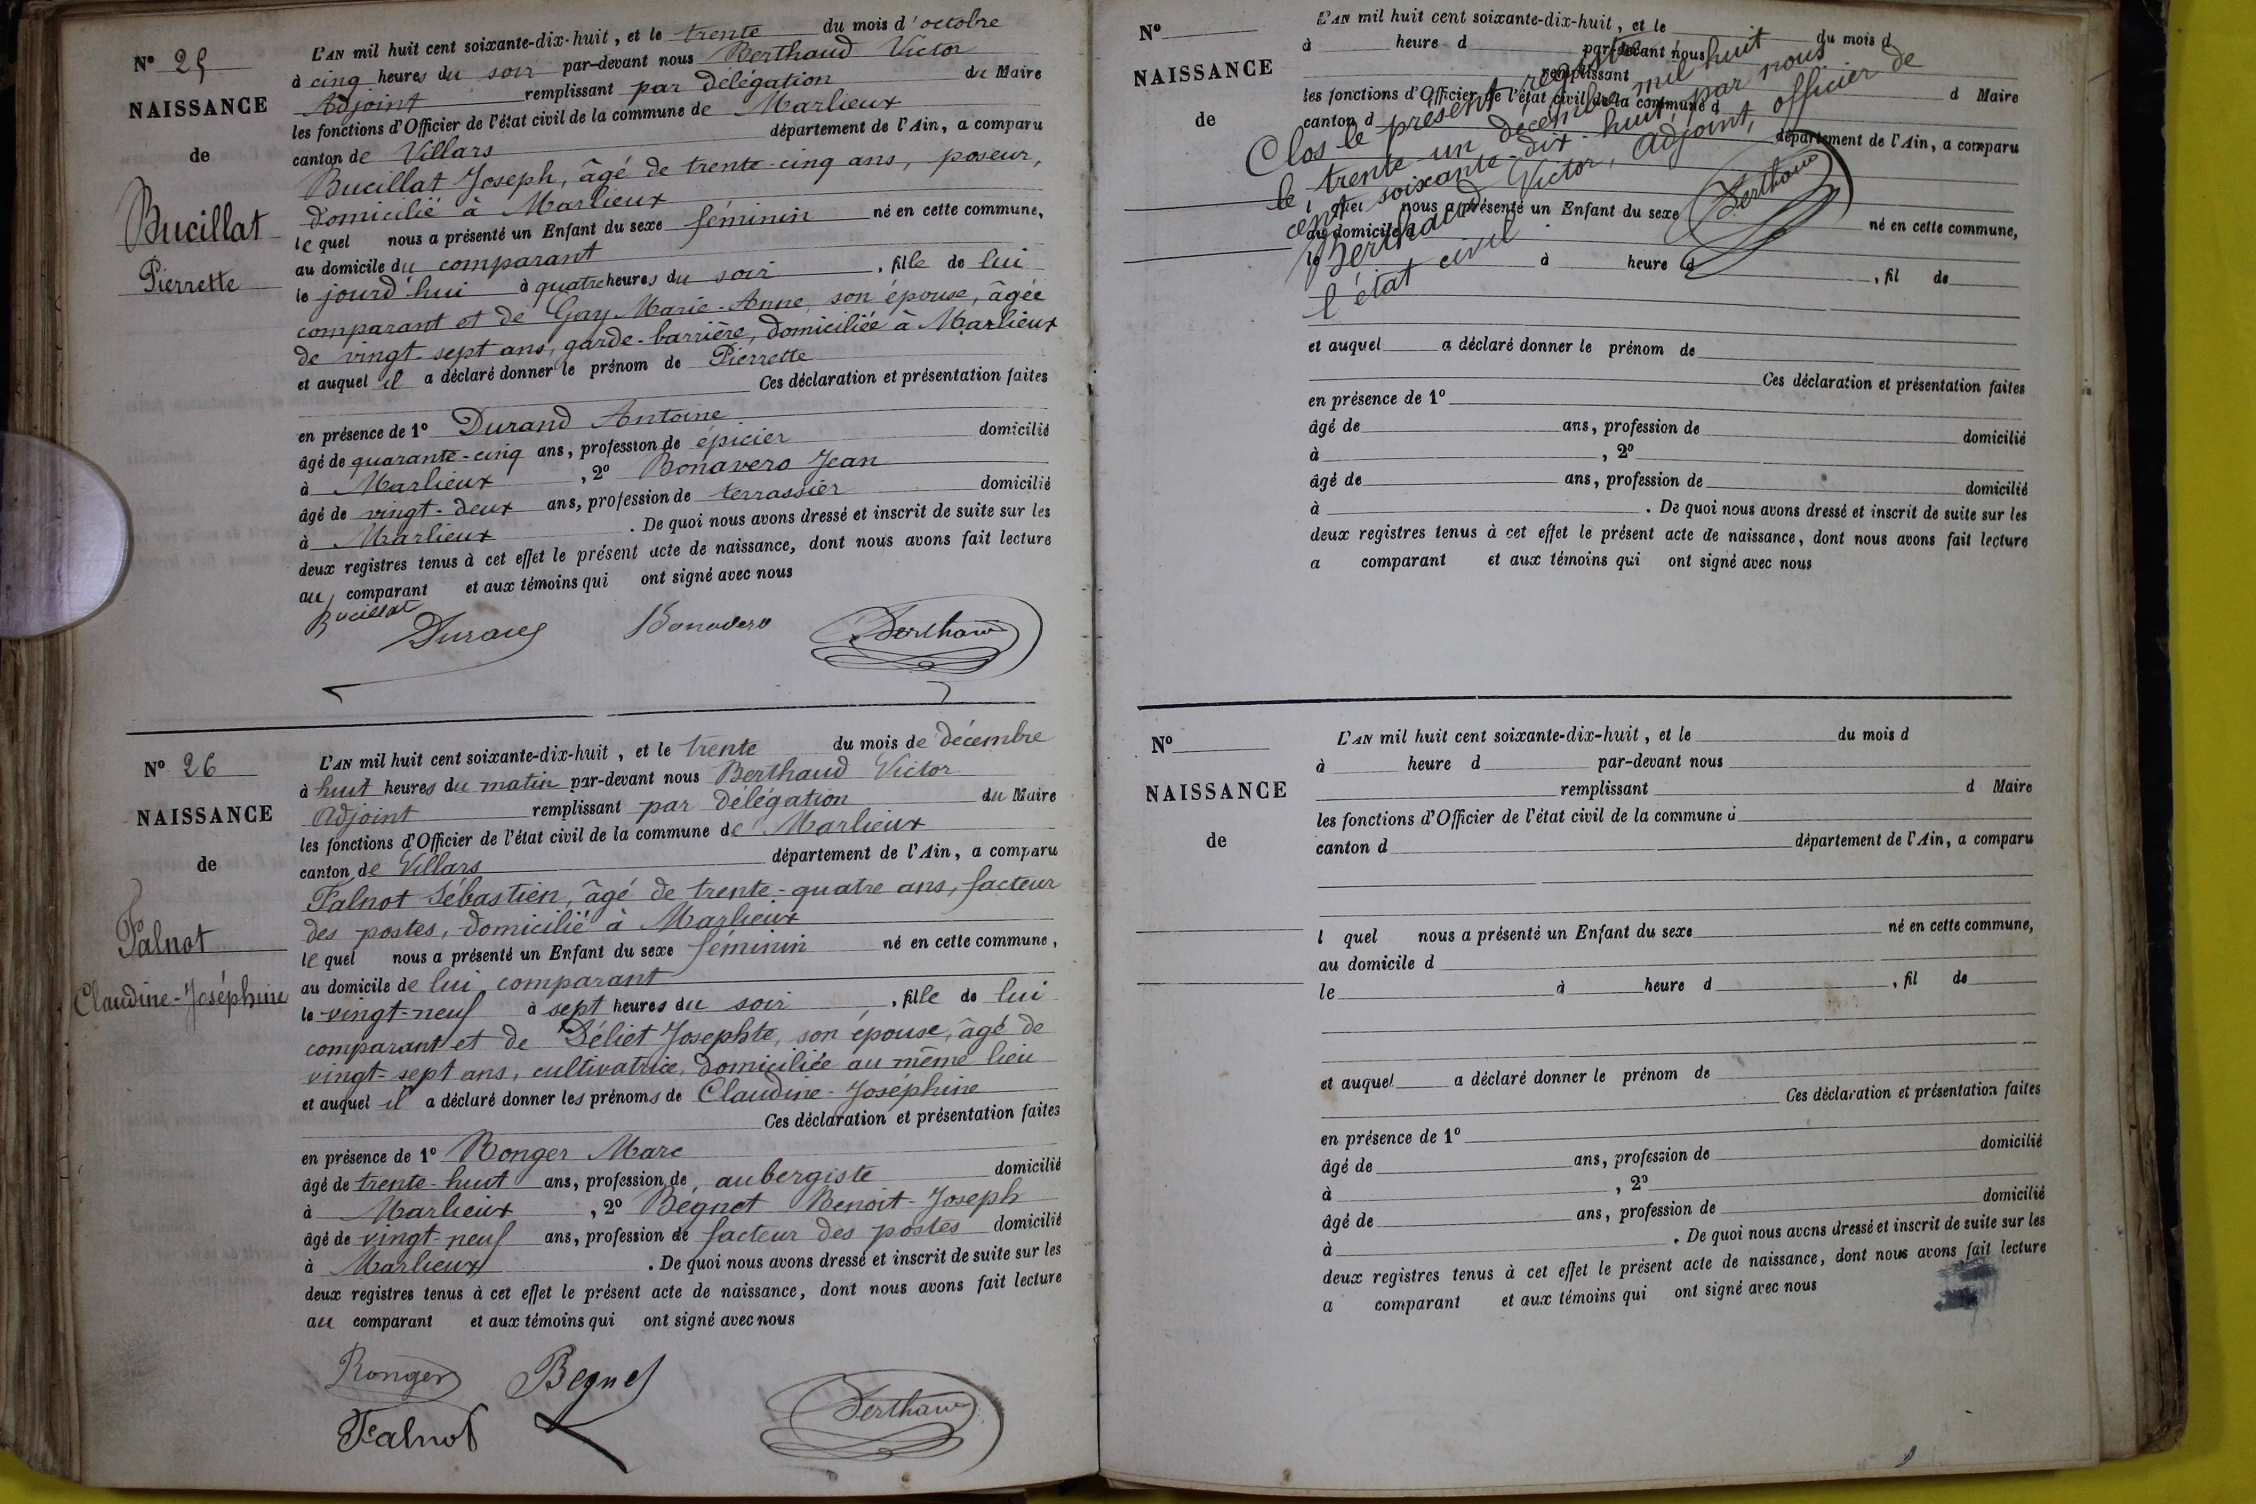 N° 25
NAISSANCE
de
Bucillat
Pierrette
L'AN mil huit cent soixante-dix-huit, et le trente du mois d'octobre
à cinq heures du soir par-devant nous Berthaud Victor
Adjoint remplissant par délégation du Maire
les fonctions d'Officier de l'état civil de la commune de Marlieux
canton de Villars département de l'Ain, a comparu
Bucillat Joseph, âgé de trente-cinq ans, poseur,
domicilié à Marlieux
lequel nous a présenté un Enfant du sexe féminin né en cette commune,
au domicile du comparant
le jourd'hui à quatre heures du soir, fille de lui
comparant et de Gay Marie-Anne, son épouse, âgée
de vingt-sept ans, garde-barrière, domiciliée à Marlieux
et auquel il a déclaré donner le prénom de Pierrette
Ces déclaration et présentation faites
en présence de 1° Durand Antoine
âgé de quarante-cinq ans, profession de épicier domicilié
à Marlieux, 2° Bonavero Jean
âgé de vingt-deux ans, profession de terrassier domicilié
à Marlieux. De quoi nous avons dressé et inscrit de suite sur les
deux registres tenus à cet effet le présent acte de naissance, dont nous avons fait lecture
au comparant et aux témoins qui ont signé avec nous
Bucillat
Durand Bonavero Berthaud
N° 26
NAISSANCE
de
Falnot
Claudine-Joséphine
L'AN mil huit cent soixante-dix-huit, et le trente du mois de décembre
à huit heures du matin par-devant nous Berthaud Victor
Adjoint remplissant par délégation du Maire
les fonctions d'Officier de l'état civil de la commune de Marlieux
canton de Villars département de l'Ain, a comparu
Falnot Sébastien, âgé de trente-quatre ans, facteur
des postes, domicilié à Marlieux
lequel nous a présenté un Enfant du sexe féminin né en cette commune,
au domicile de lui comparant
le vingt-neuf à sept heures du soir, fille de lui
comparant et de Déliet Josephte, son épouse, âgé de
vingt-sept ans, cultivatrice, domiciliée au même lieu
et auquel il a déclaré donner les prénoms de Claudine-Joséphine
Ces déclaration et présentation faites
en présence de 1° Ronger Marc
âgé de trente-huit ans, profession de aubergiste domicilié
à Marlieux, 2° Bégnet Benoit-Joseph
âgé de vingt-neuf ans, profession de facteur des postes domicilié
à Marlieux. De quoi nous avons dressé et inscrit de suite sur les
deux registres tenus à cet effet le présent acte de naissance, dont nous avons fait lecture
au comparant et aux témoins qui ont signé avec nous
Ronger Begnet
Falnot Berthaud
N°
NAISSANCE
de
L'AN mil huit cent soixante-dix-huit, et le du mois d
à heure d par-devant nous
remplissant d Maire
les fonctions d'Officier de l'état civil de la commune d
canton d département de l'Ain, a comparu
l quel nous a présenté un Enfant du sexe né en cette commune,
au domicile d
le à heure d, fil de
Clos le présent registre
le trente-un décembre mil huit
cent soixante-dix-huit, par nous
Berthaud Victor, Adjoint, officier de
l'état civil
Berthaud
et auquel a déclaré donner le prénom de
Ces déclaration et présentation faites
en présence de 1°
âgé de ans, profession de domicilié
à , 2°
âgé de ans, profession de domicilié
à . De quoi nous avons dressé et inscrit de suite sur les
deux registres tenus à cet effet le présent acte de naissance, dont nous avons fait lecture
a comparant et aux témoins qui ont signé avec nous
N°
NAISSANCE
de
L'AN mil huit cent soixante-dix-huit, et le du mois d
à heure d par-devant nous
remplissant d Maire
les fonctions d'Officier de l'état civil de la commune d
canton d département de l'Ain, a comparu
l quel nous a présenté un Enfant du sexe né en cette commune,
au domicile d
le à heure d , fil de
et auquel a déclaré donner le prénom de
Ces déclaration et présentation faites
en présence de 1°
âgé de ans, profession de domicilié
à , 2°
âgé de ans, profession de domicilié
à . De quoi nous avons dressé et inscrit de suite sur les
deux registres tenus à cet effet le présent acte de naissance, dont nous avons fait lecture
a comparant et aux témoins qui ont signé avec nous